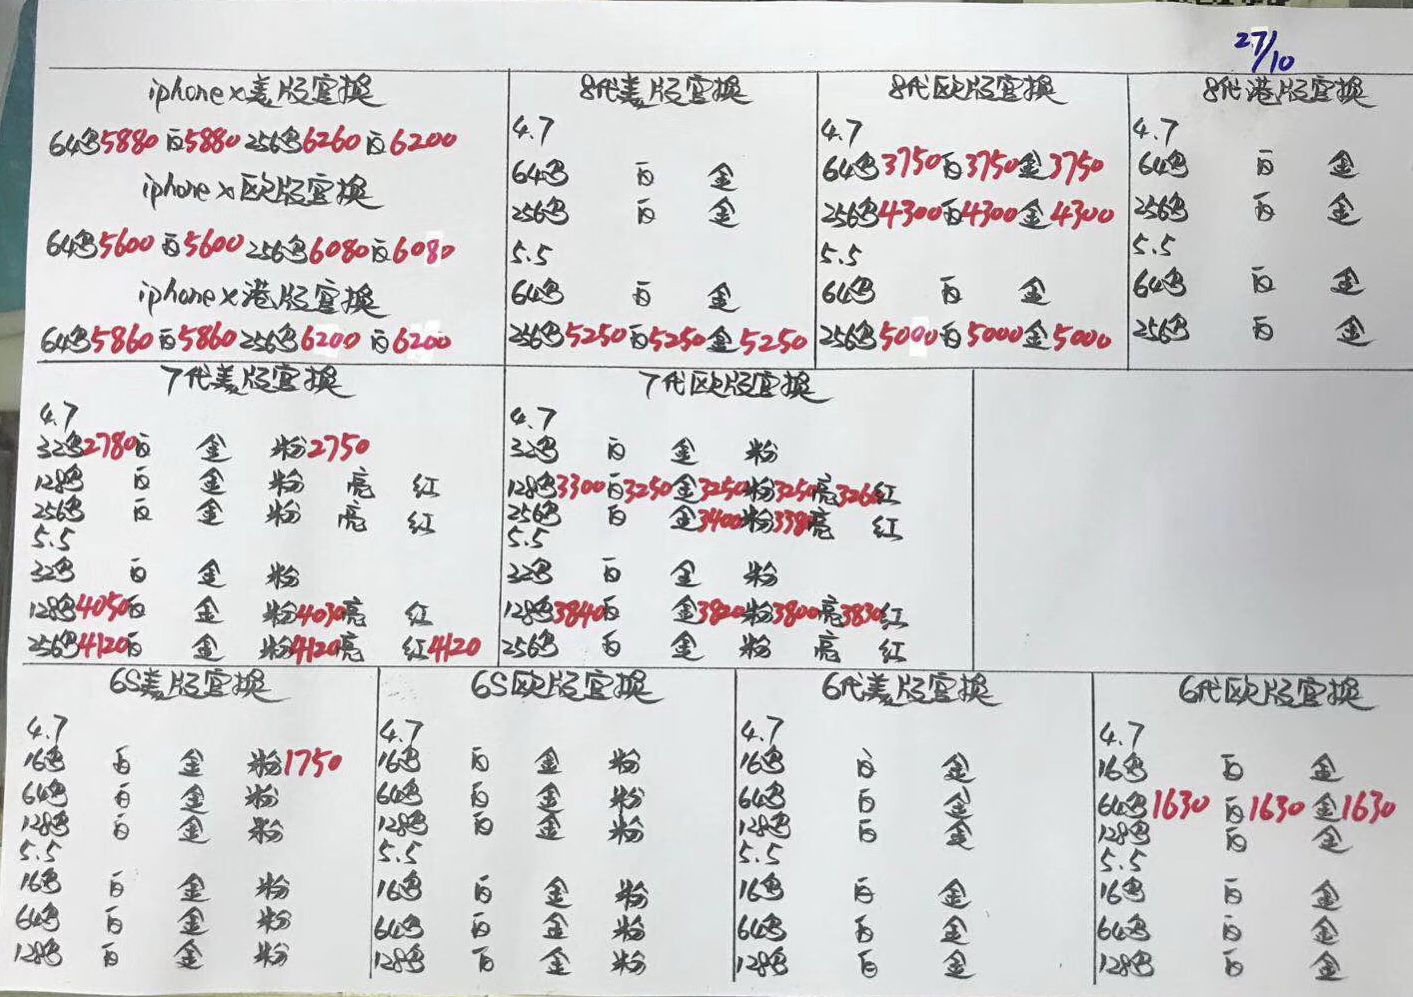 27/10
iphone x美版官换
64黑5880 白5880 256黑6260 白6200
iphone x欧版官换
64黑5600 白5600 256黑6080 白6080
iphone x港版官换
64黑5860 白5860 256黑6200 白6200
8代美版官换
4.7
64黑 白 金
256黑 白 金
5.5
64黑 白 金
256黑5250白5250金5250
8代欧版官换
4.7
64黑3750白3750金3750
256黑4300白4300金4300
5.5
64黑 白 金
256黑5000白5000金5000
8代港版官换
4.7
64黑 白 金
256黑 白 金
5.5
64黑 白 金
256黑 白 金
7代美版官换
4.7
32黑2780白 金 粉2750
128黑 白 金 粉 亮 红
256黑 白 金 粉 亮 红
5.5
32黑 白 金 粉
128黑4050白 金 粉4030亮 红
256黑4120白 金 粉4120亮 红4120
7代欧版官换
4.7
32黑 白 金 粉
128黑3300白3250金3250粉3250亮3260红
256黑 白 金3400粉3380亮 红
5.5
32黑 白 金 粉
128黑3840白 金3820粉3800亮3830红
256黑 白 金 粉 亮 红
6S美版官换
4.7
16黑 白 金 粉1750
64黑 白 金 粉
128黑 白 金 粉
5.5
16黑 白 金 粉
64黑 白 金 粉
128黑 白 金 粉
6S欧版官换
4.7
16黑 白 金 粉
64黑 白 金 粉
128黑 白 金 粉
5.5
16黑 白 金 粉
64黑 白 金 粉
128黑 白 金 粉
6代美版官换
4.7
16黑 白 金
64黑 白 金
128黑 白 金
5.5
16黑 白 金
64黑 白 金
128黑 白 金
6代欧版官换
4.7
16黑 白 金
64黑1630 白1630 金1630
128黑 白 金
5.5
16黑 白 金
64黑 白 金
128黑 白 金